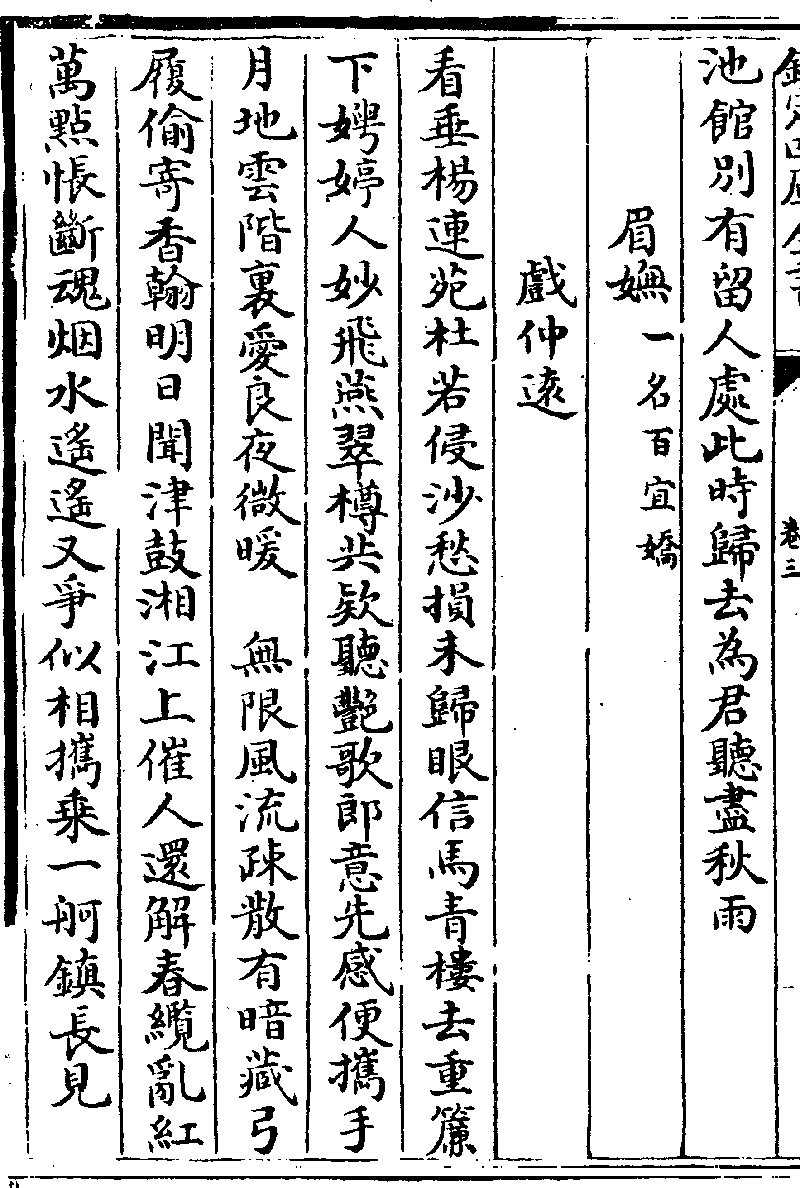 欽定四庫全書 卷三
池館別有留人處此時歸去為君聽盡秋雨
眉嫵一名百宜嬌
戲仲遠
看垂楊連苑杜若侵沙愁損未歸眼信馬青樓去重簾
下娉婷人妙飛燕翠樽共欵聽艷歌郎意先感便攜手
月地雲階裏愛良夜微暖 無限風流疎散有暗藏弓
履偷寄香翰明日聞津鼓湘江上催人還解春纜亂紅
萬點悵斷魂烟水遙遙又爭似相攜乘一舸鎮長見